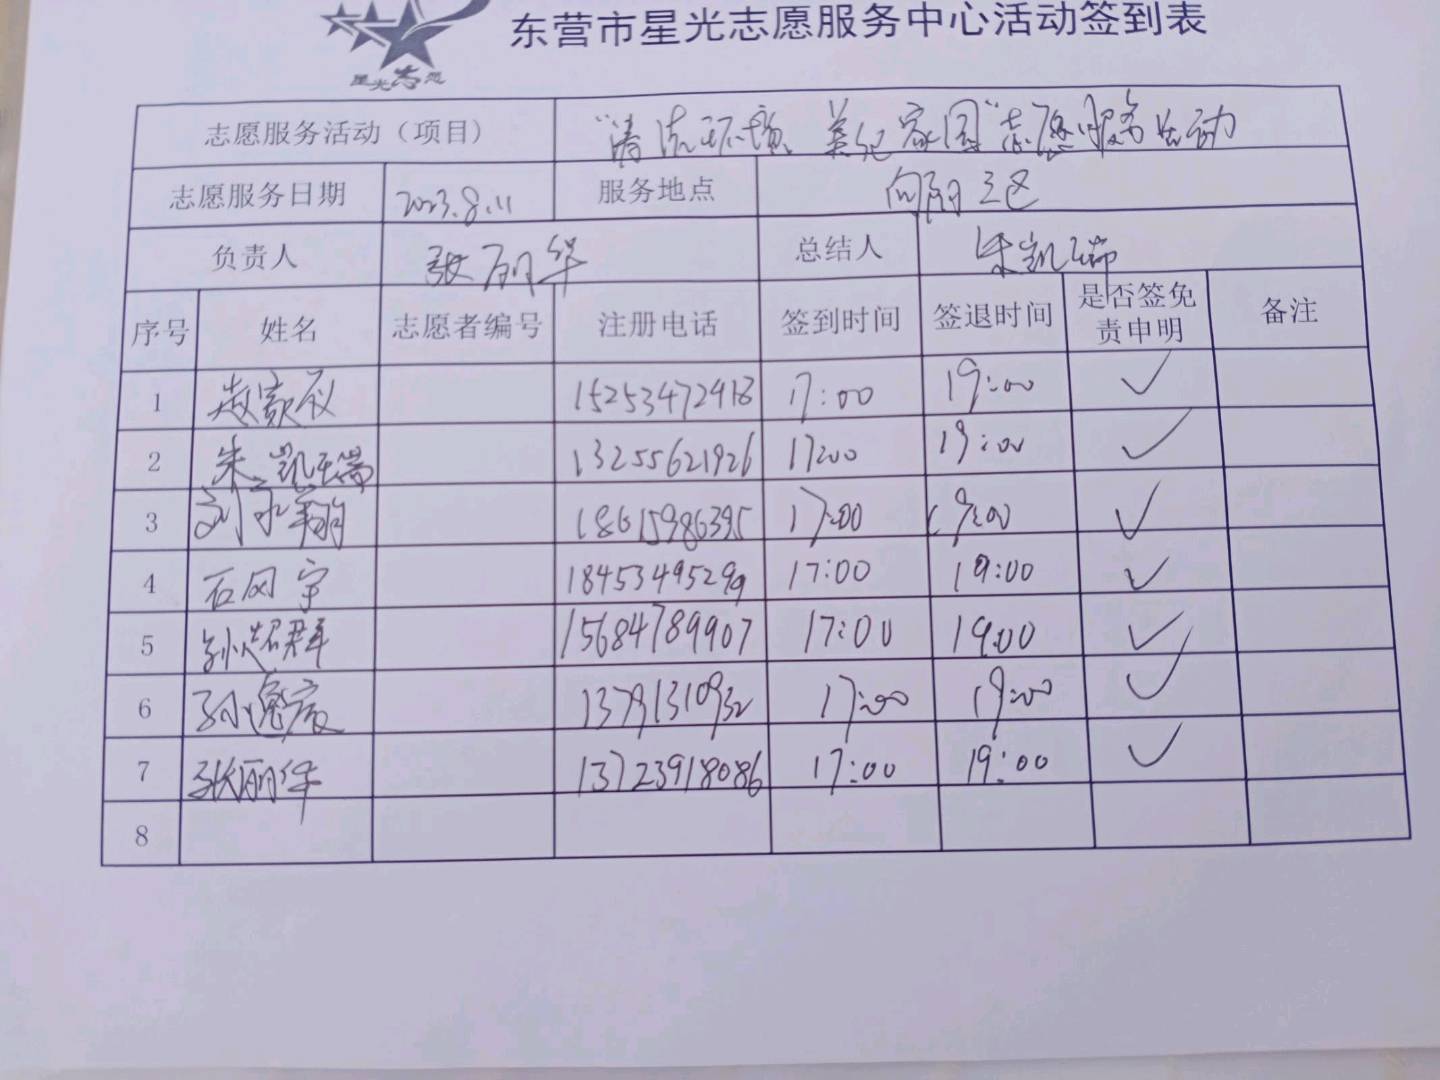 星光志愿
东营市星光志愿服务中心活动签到表
志愿服务活动（项目） “清洁环境 美化家园”志愿服务活动
志愿服务日期 2023.8.11 服务地点 向阳三区
负责人 张丽华 总结人 朱凯瑞
序号 姓名 志愿者编号 注册电话 签到时间 签退时间 是否签免责申明 备注
1 赵家仪 15253472418 17:00 19:00 ✓
2 朱凯瑞 13255621926 17:00 19:00 ✓
3 刘子翔 18615986395 17:00 19:00 ✓
4 石冈宇 18453495299 17:00 19:00 ✓
5 孙超群 15684789907 17:00 19:00 ✓
6 孙逸宸 13791310932 17:00 19:00 ✓
7 张丽华 13723918086 17:00 19:00 ✓
8